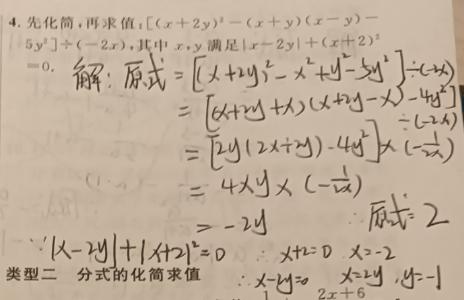 4. 先化简,再求值:[(x+2y)²-(x+y)(x-y)-
5y²]÷(-2x),其中 x,y 满足|x-2y|+(x+2)²
=0.
解:原式=[(x+2y)²-x²+y²-5y²]÷(-2x)
=[(x+2y+x)(x+2y-x)-4y²]
÷(-2x)
=[2y(2x+2y)-4y²]×(-1/2x)
=4xy×(-1/2x)
=-2y ∴原式=2
∵|x-2y|+|x+2|²=0 ∴x+2=0 x=-2
类型二 分式的化简求值 ∴x-2y=0 x=2y,y=-1
2x+6